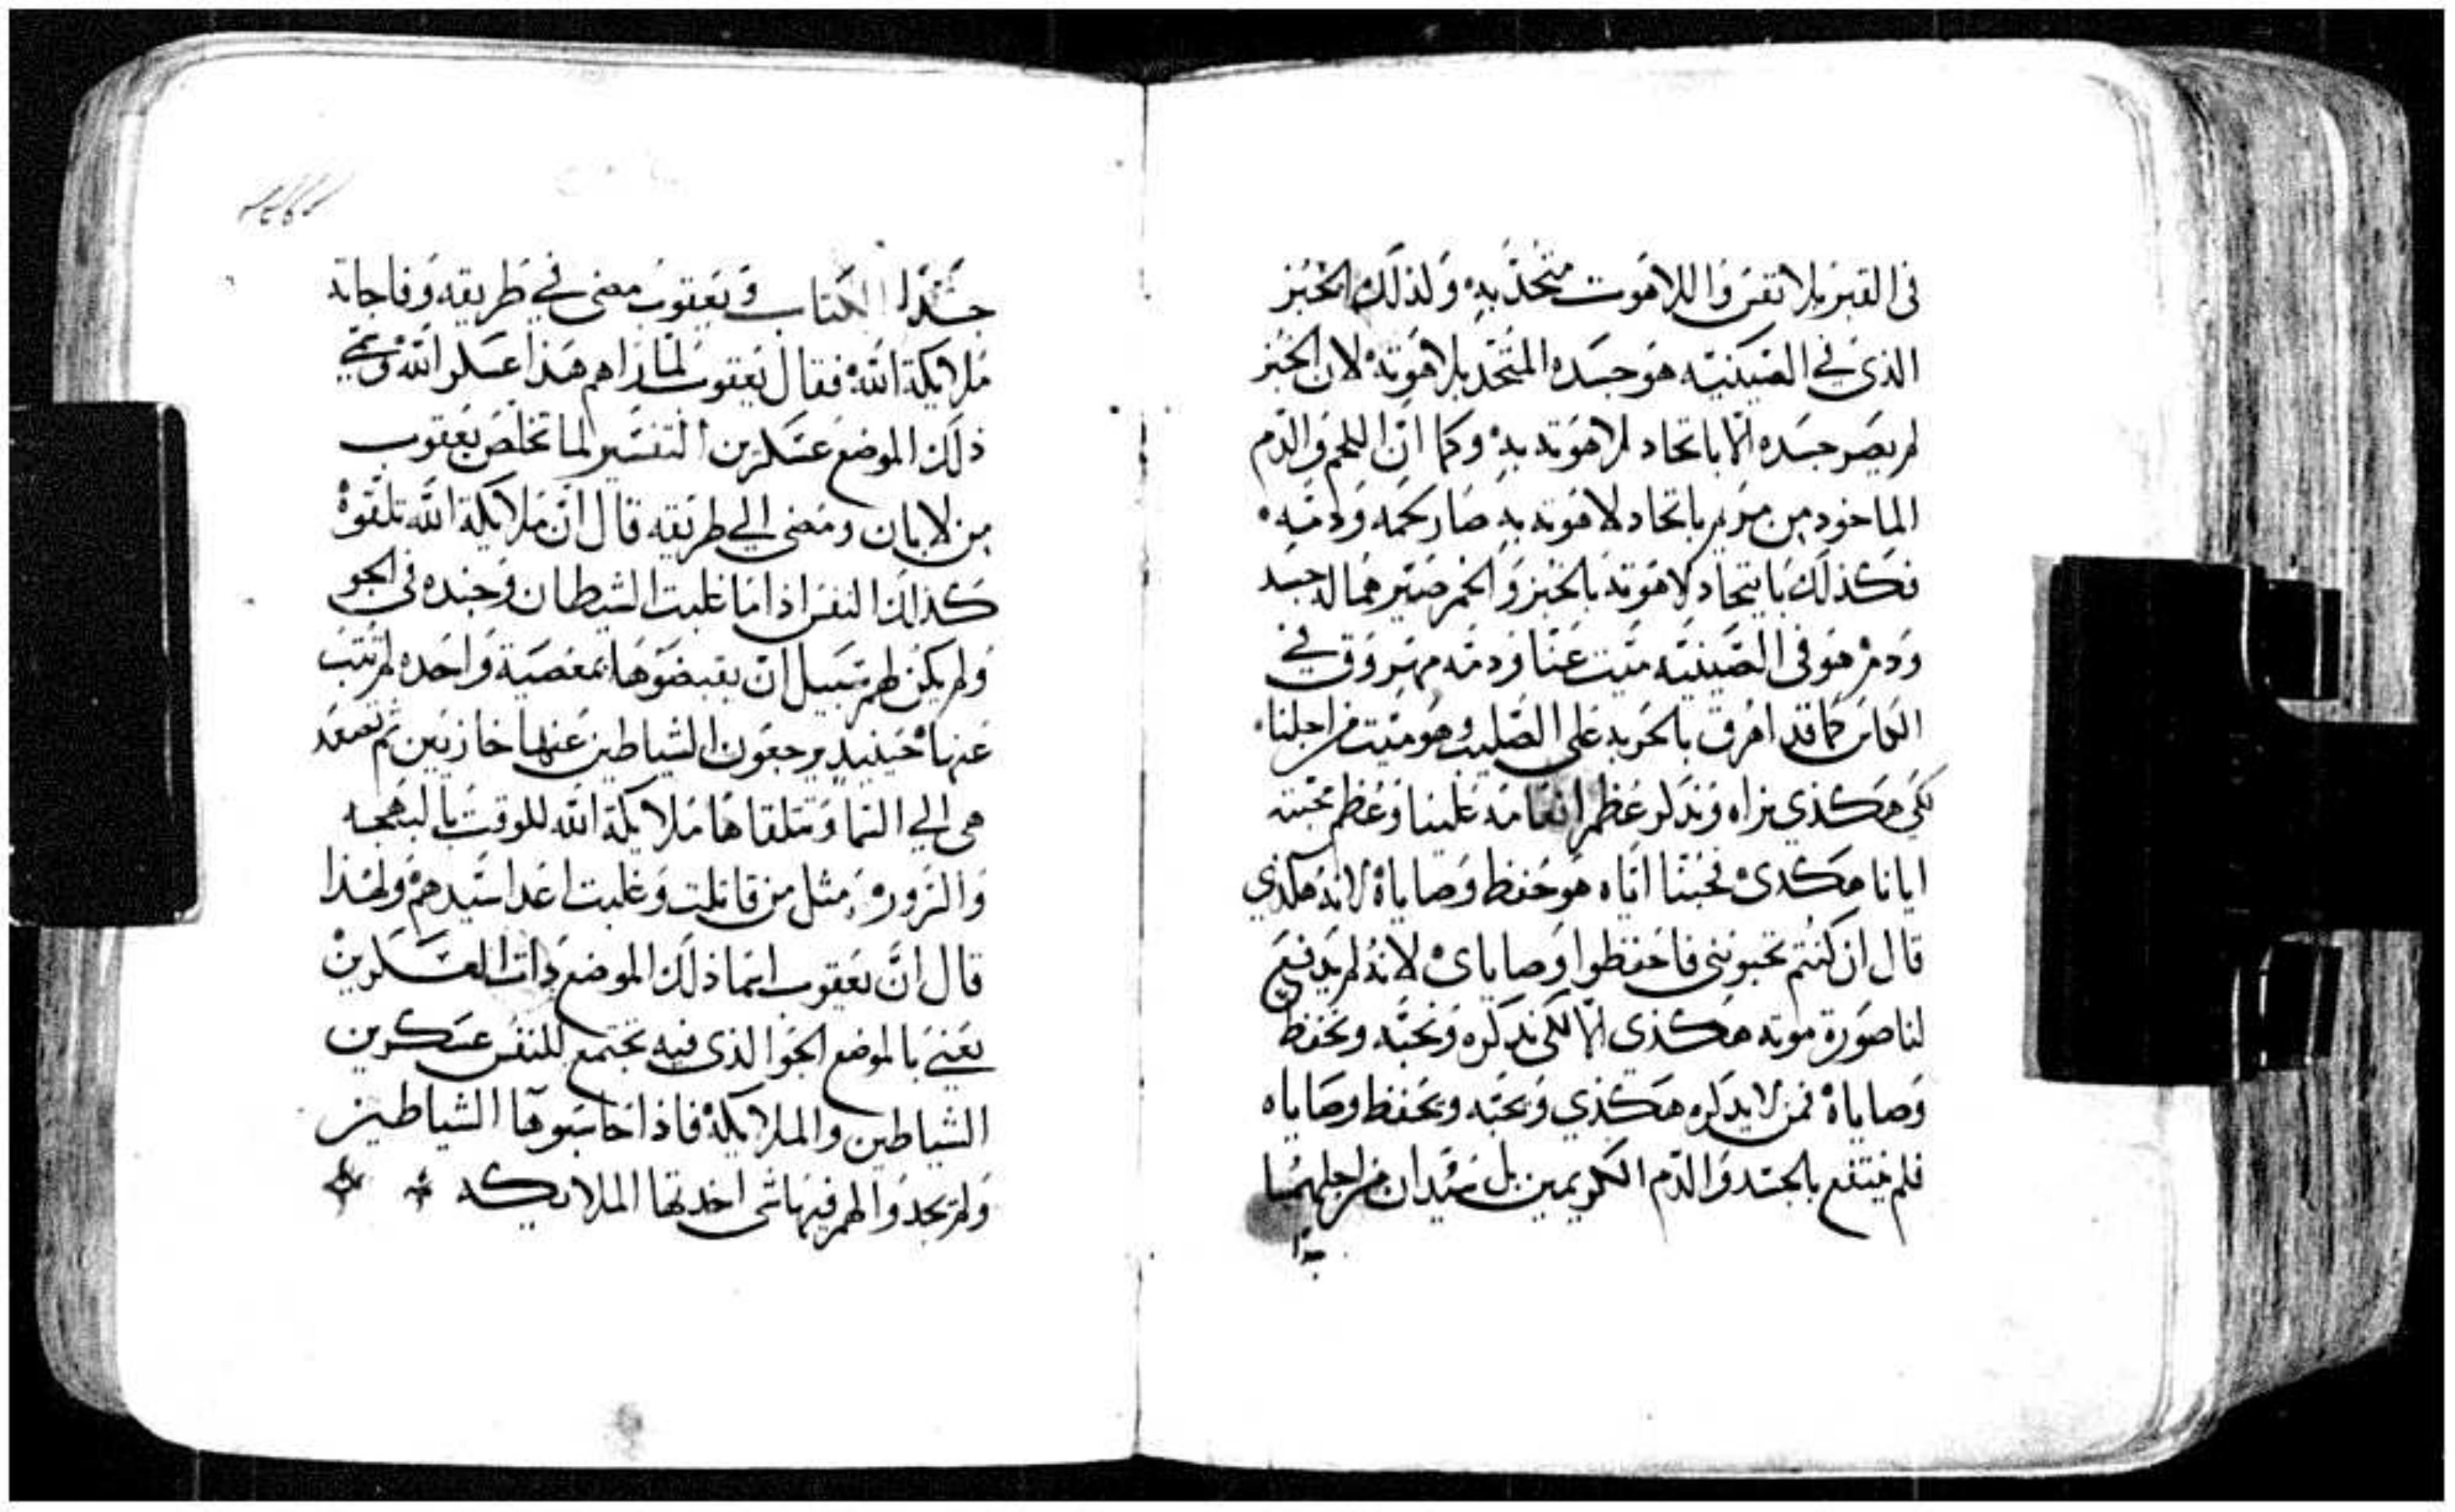 في القبر بلا نفس واللاهوت متحد به ولذلك الخبز
الذي في الصينيه هو جسده المتحد بلاهوته لان الخبز
لم يصر جسده الا باتحاد لاهوته به وكما ان اللحم والدم
الماخود من مريم باتحاد لاهوته به صار لحمه ودمه
فكذلك باتحاد لاهوته بالخبز والخمر صيرهما له جسد
ودم هو في الصينيه ميت عنا ودمه مهروق في
الكاس كما قد اهرق بالحربه على الصليب وهو ميت من اجلنا
لكي هكذي نراه وندكر عظم انعامه علينا وعظم محبته
ايانا هكدى نحبنا اياه هو حفظ وصاياه لانه هكذي
قال ان كنتم تحبوني فاحفظوا وصاياى لانه لم يدفع
لنا صورة موته هكذي الا لكي ندكره ونحبه ونحفظ
وصاياه فمن لا يدكره هكذي ويحبه ويحفظ وصاياه
فلم ينتفع بالجسد والدم الكريمين بل من اجلهما
الكتاب ويعقوب مضى في طريقه وفاجاته
ملايكة الله فقال يعقوب لما راهم هذا عسكر الله وسمي
ذلك الموضع عسكرين التفسير لما تخلص يعقوب
من لابان ومضى الي طريقه قال ان ملايكة الله تلقوه
كذالك النفس اذا ما غلبت الشيطان وجنده في الجو
ولم يكن لهم سبيل ان يقبضوها بمعصية واحده لم تتب
عنها حينيد يرجعون الشياطين عنها خازيين ثم تصعد
هي الي السما وتتلقاها ملايكة الله للوقت بالبهجه
والسرور مثل من قاتلت وغلبت اعدا سيدهم ولهذا
قال ان يعقوب اسما ذلك الموضع ذات العسكرين
يعني بالموضع الجو الذي فيه تجتمع للنفس عسكرين
الشياطين والملايكة فاذا حاسبوها الشياطين
ولم يجدوا لهم فيها شي اخدتها الملايكه